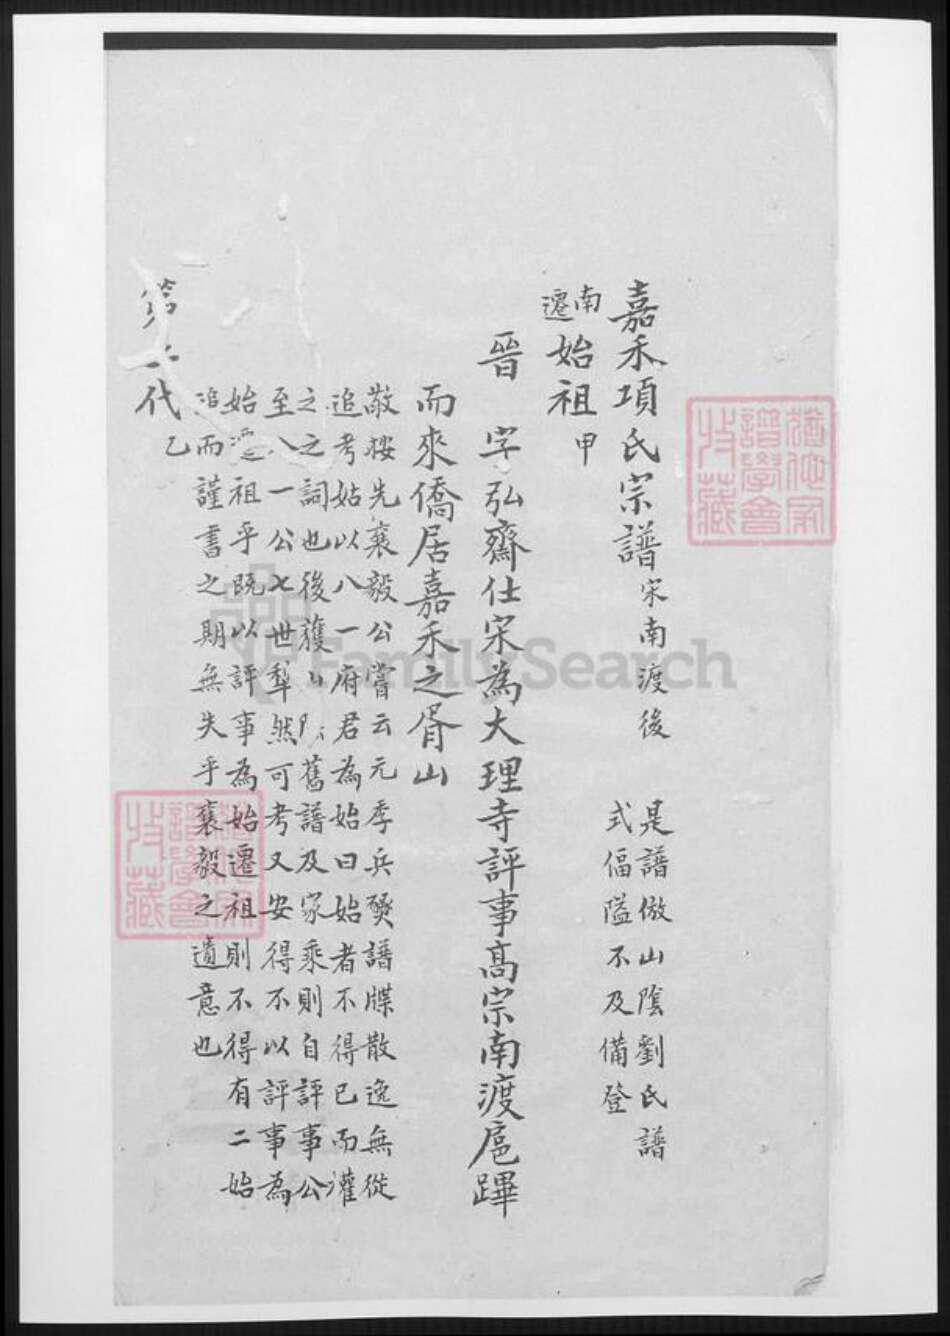 嘉禾項氏宗譜 宋南渡後 是譜倣山陰劉氏譜
式偪隘不及備登
南遷始祖 甲
晉 字弘齋仕宋為大理寺評事高宗南渡扈蹕
而來僑居嘉禾之胥山
敬按先襄毅公嘗云元季兵燹譜牒散逸無從
追考姑以八一府君為始曰始者不得已而權
之之詞也後獲 舊譜及家乘則自評事公
至八一公七世犁然可考又安得不以評事為
始遷祖乎既以評事為始遷祖則不得有二始
而謹書之期無失乎襄毅之遺意也
第 代 乙
FamilySearch
譜學會
收藏
譜學會
收藏